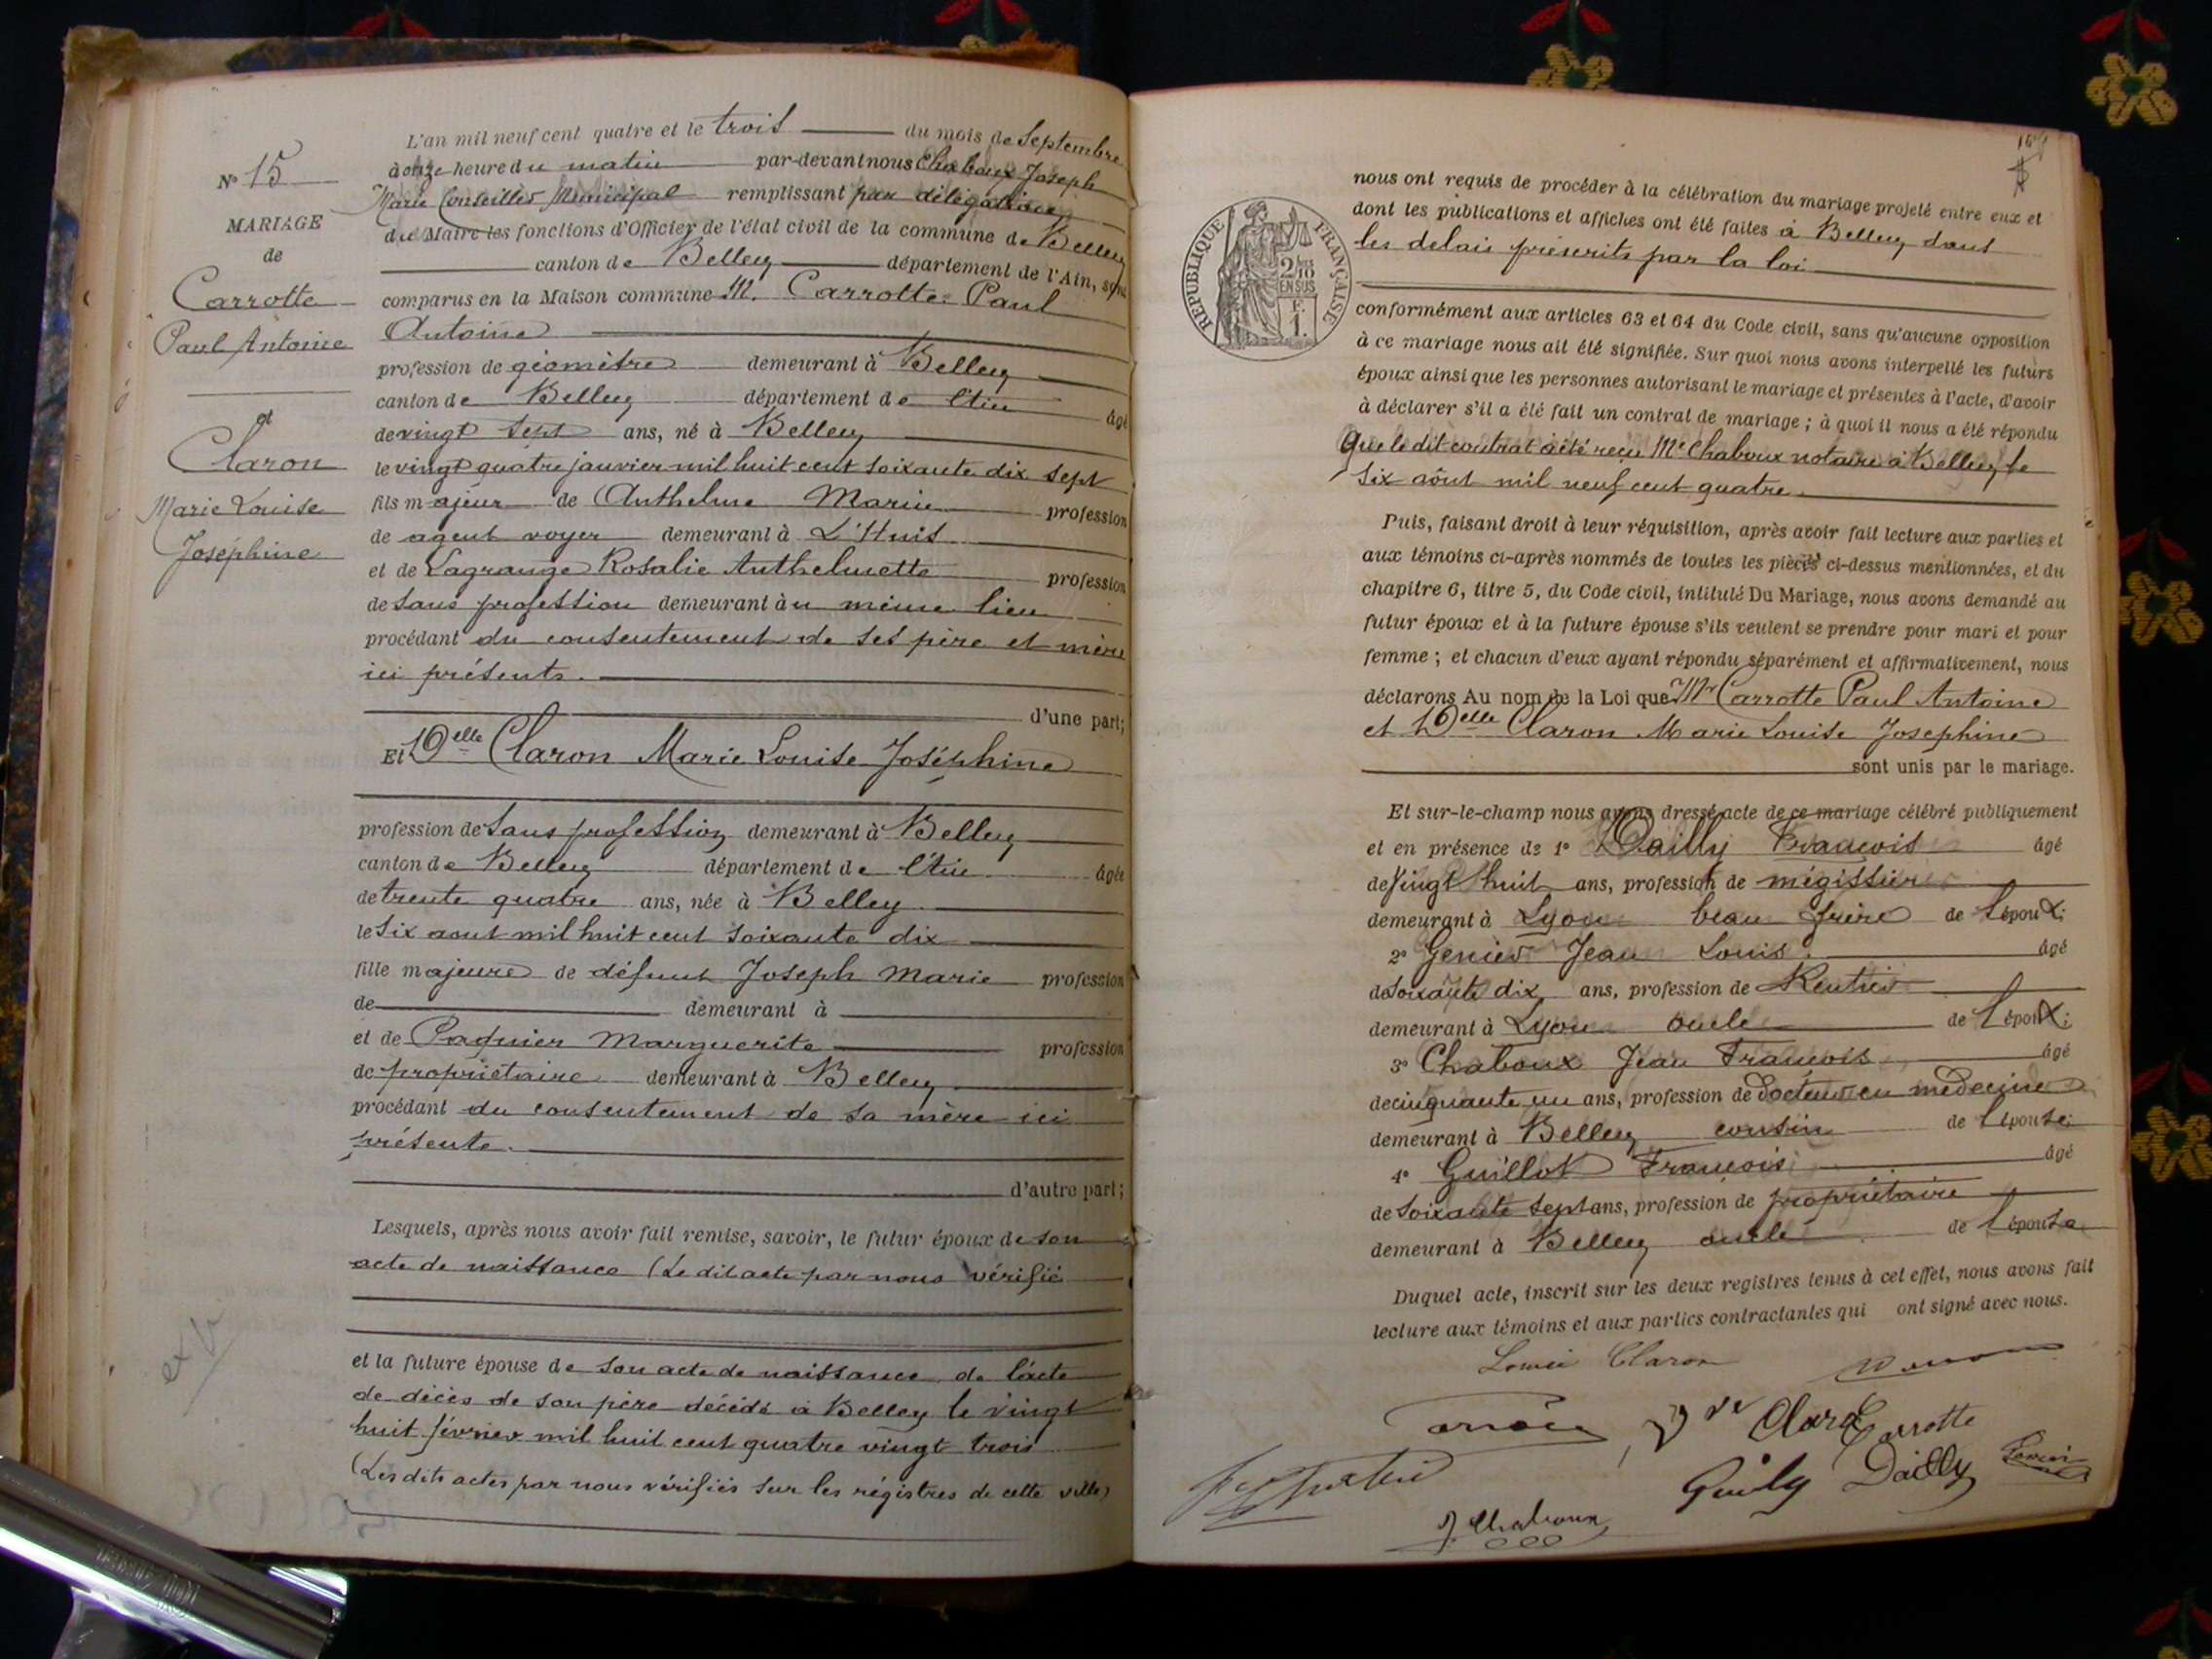 N° 15
MARIAGE
de
Carrotte
Paul Antoine
et
Claron
Marie Louise
Joséphine
L'an mil neuf cent quatre et le trois du mois de Septembre
à onze heure du matin par-devant nous Chaboux Joseph
Marie Conseiller Municipal remplissant par délégation
du Maire les fonctions d'Officier de l'état civil de la commune de Belley
canton de Belley département de l'Ain, sont
comparus en la Maison commune M. Carrotte Paul
Antoine
profession de géomètre demeurant à Belley
canton de Belley département de l'Ain âgé
de vingt sept ans, né à Belley
le vingt quatre janvier mil huit cent soixante dix sept
fils majeur de Anthelme Marie profession
de agent voyer demeurant à L'Huis
et de Lagrange Rosalie Anthelmette profession
de sans profession demeurant à u même lieu
procédant du consentement de ses père et mère
ici présents.
d'une part;
Et Delle Claron Marie Louise Joséphine
profession de sans profession demeurant à Belley
canton de Belley département de l'Ain âgée
de trente quatre ans, née à Belley
le six aout mil huit cent soixante dix
fille majeure de défunt Joseph Marie profession
de demeurant à
et de Marguerite profession
de propriétaire demeurant à Belley
procédant du consentement de sa mère ici
présente.
d'autre part;
Lesquels, après nous avoir fait remise, savoir, le futur époux de son
acte de naissance (Le dit acte par nous vérifié
et la future épouse de son acte de naissance de l'acte
de décès de son père décédé à Belley le vingt
huit février mil huit cent quatre vingt trois
(Les dits actes par nous vérifiés sur les régistres de cette ville)
RÉPUBLIQUE FRANÇAISE
2/10
EN SUS
nous ont requis de procéder à la célébration du mariage projeté entre eux et
dont les publications et affiches ont été faites à Belley dans
les delais préscrits par la loi
conformément aux articles 63 et 64 du Code civil, sans qu'aucune opposition
à ce mariage nous ait été signifiée. Sur quoi nous avons interpellé les futurs
époux ainsi que les personnes autorisant le mariage et présentes à l'acte, d'avoir
à déclarer s'il a été fait un contrat de mariage ; à quoi il nous a été répondu
que le dit contrat a été reçu Me Chaboux notaire à Belley le
six aôut mil neuf cent quatre.
Puis, faisant droit à leur réquisition, après avoir fait lecture aux parties et
aux témoins ci-après nommés de toutes les pièces ci-dessus mentionnées, et du
chapitre 6, titre 5, du Code civil, intitulé Du Mariage, nous avons demandé au
futur époux et à la future épouse s'ils veulent se prendre pour mari et pour
femme ; et chacun d'eux ayant répondu séparément et affirmativement, nous
déclarons Au nom de la Loi que Mr Carrotte Paul Antoine
et Delle Claron Marie Louise Josephine
sont unis par le mariage.
Et sur-le-champ nous avons dressé acte de ce mariage célébré publiquement
et en présence de 1° Dailly François âgé
de vingt huit ans, profession de mégissier
demeurant à Lyon beau frère de l'époux;
2° Genier Jean Louis. âgé
de soixante dix ans, profession de Rentier
demeurant à Lyon oncle de l'époux;
3° Chaboux Jean François âgé
de cinquante un ans, profession de docteur en médecine
demeurant à Belley cousin de l'épouse;
4° Guillot François âgé
de soixante sept ans, profession de propriétaire
demeurant à Belley oncle de l'épouse
Duquel acte, inscrit sur les deux registres tenus à cet effet, nous avons fait
lecture aux témoins et aux parties contractantes qui ont signé avec nous.
Claron
Carrotte
Dailly
J Chaboux